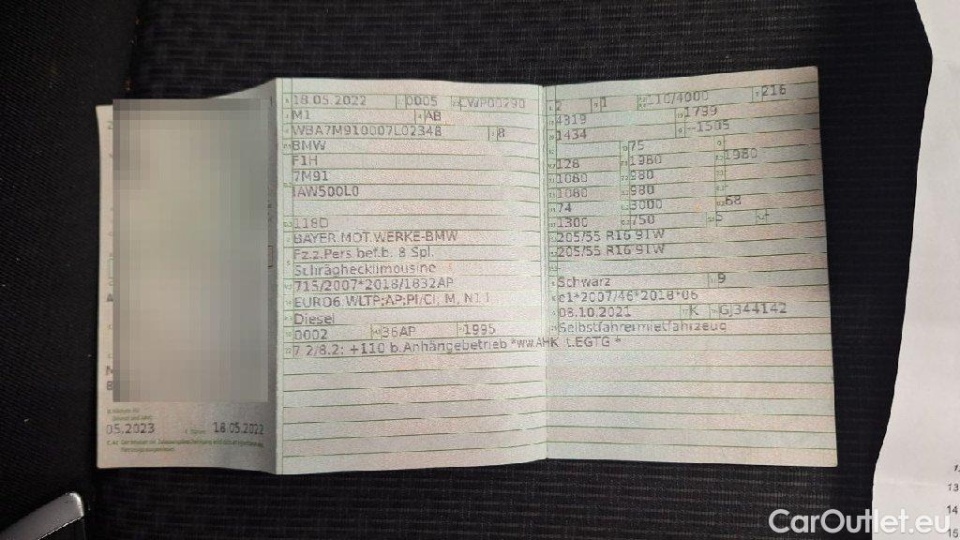 05.2023 18.05.2022
18.05.2022 0005
M1 AB
WBA7M910007L02348 8
BMW
F1H
7M91
IAW500L0
118D
BAYER.MOT.WERKE-BMW
Fz.z.Pers.bef.b. 8 Spl.
Schräghecklimousine
715/2007*2018/1832AP
Diesel
0002 36AP 1995
7.2/8.2: +110 b.Anhängebetrieb *ww.AHK LEGTG *
2 1 110/4000 216
4319 1799
1434 --1505
75
128 1980 1980
1080 980
1080 980
74 3000 68
1300 750 5
205/55 R16 91W
205/55 R16 91W
Schwarz 9
e1*2007/46*2018*06
08.10.2021 K GJ344142
Selbstfahrermietfahrzeug
13
14
15
CarOutlet.eu